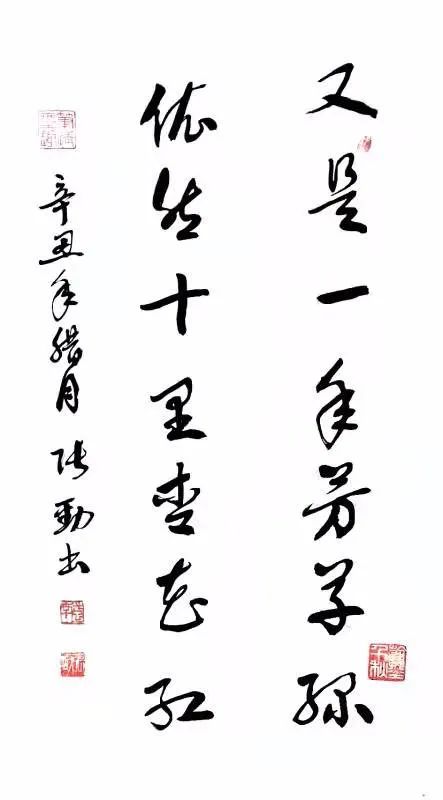 又是一年芳草绿
依然十里杏花红
辛丑年腊月 张劲书